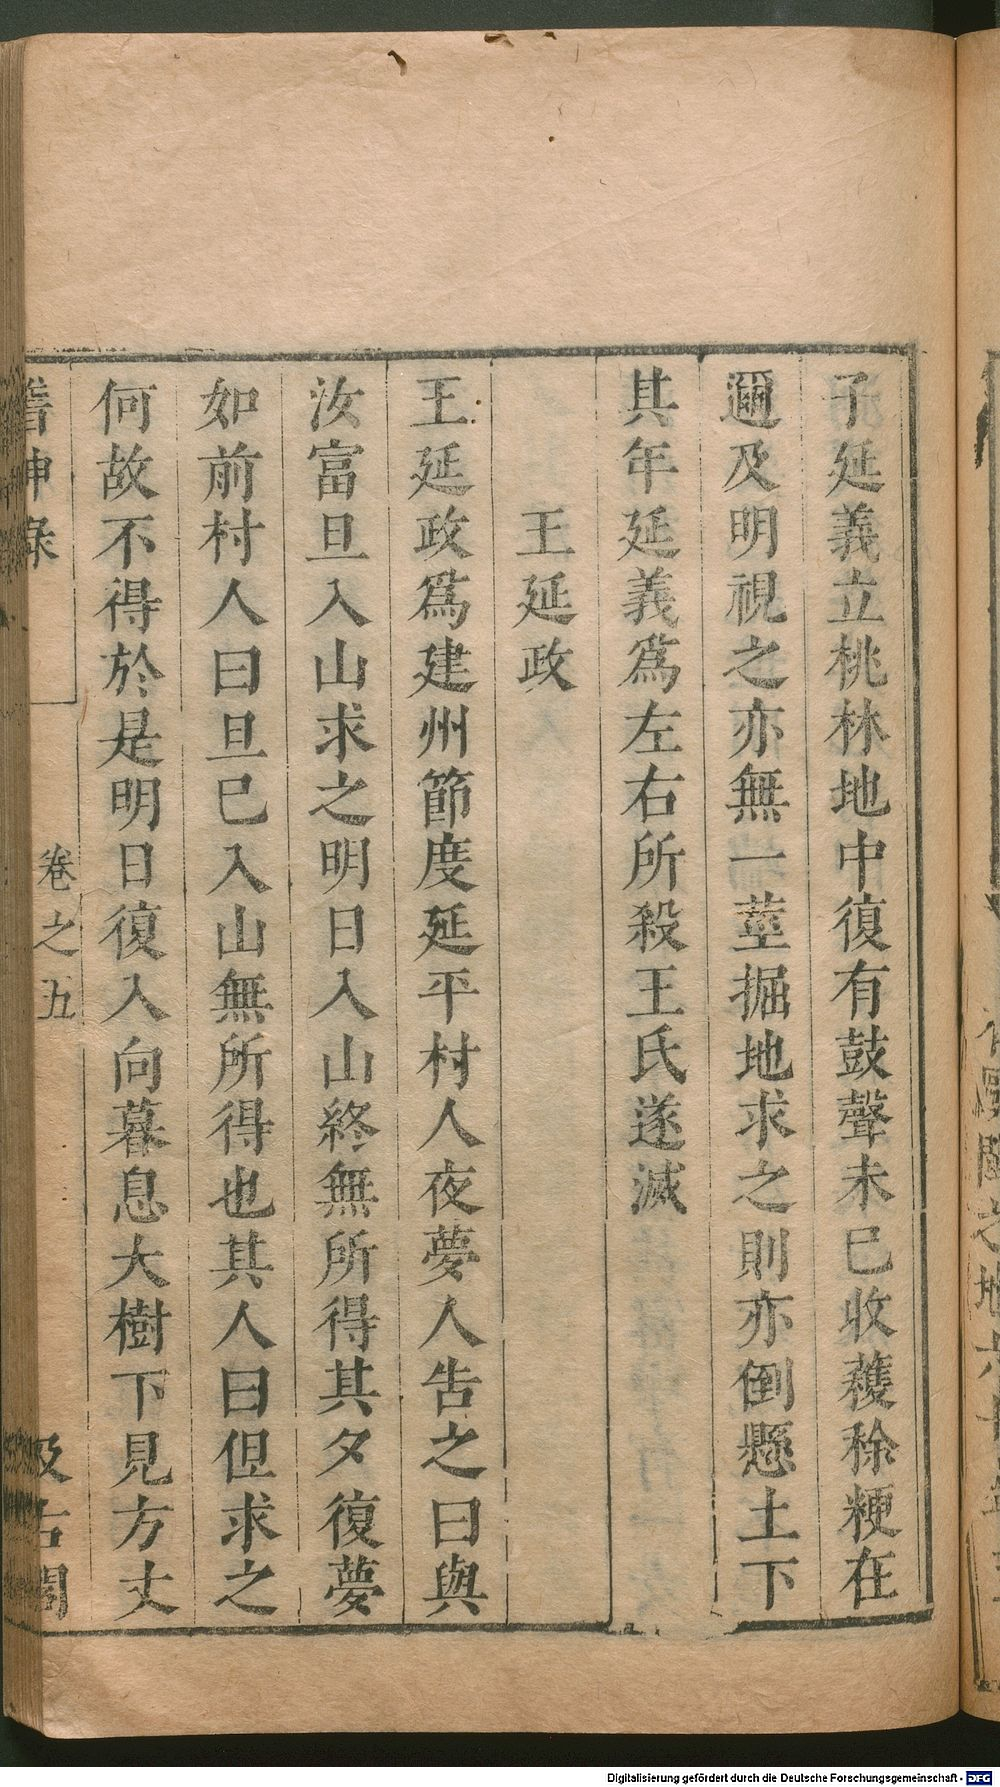 子延義立桃林地中復有鼓聲未巳收穫稌粳在
邇及明視之亦無一莖掘地求之則亦倒懸土下
其年延義爲左右所殺王氏遂滅
王延政
王延政爲建州節度延平村人夜夢人告之曰與
汝富旦入山求之明日入山終無所得其夕復夢
如前村人曰旦巳入山無所得也其人曰但求之
何故不得於是明日復入向暮息大樹下見方丈
稽神錄
卷之五
汲古閣
Digitalisierung gefördert durch die Deutsche Forschungsgemeinschaft - DFG